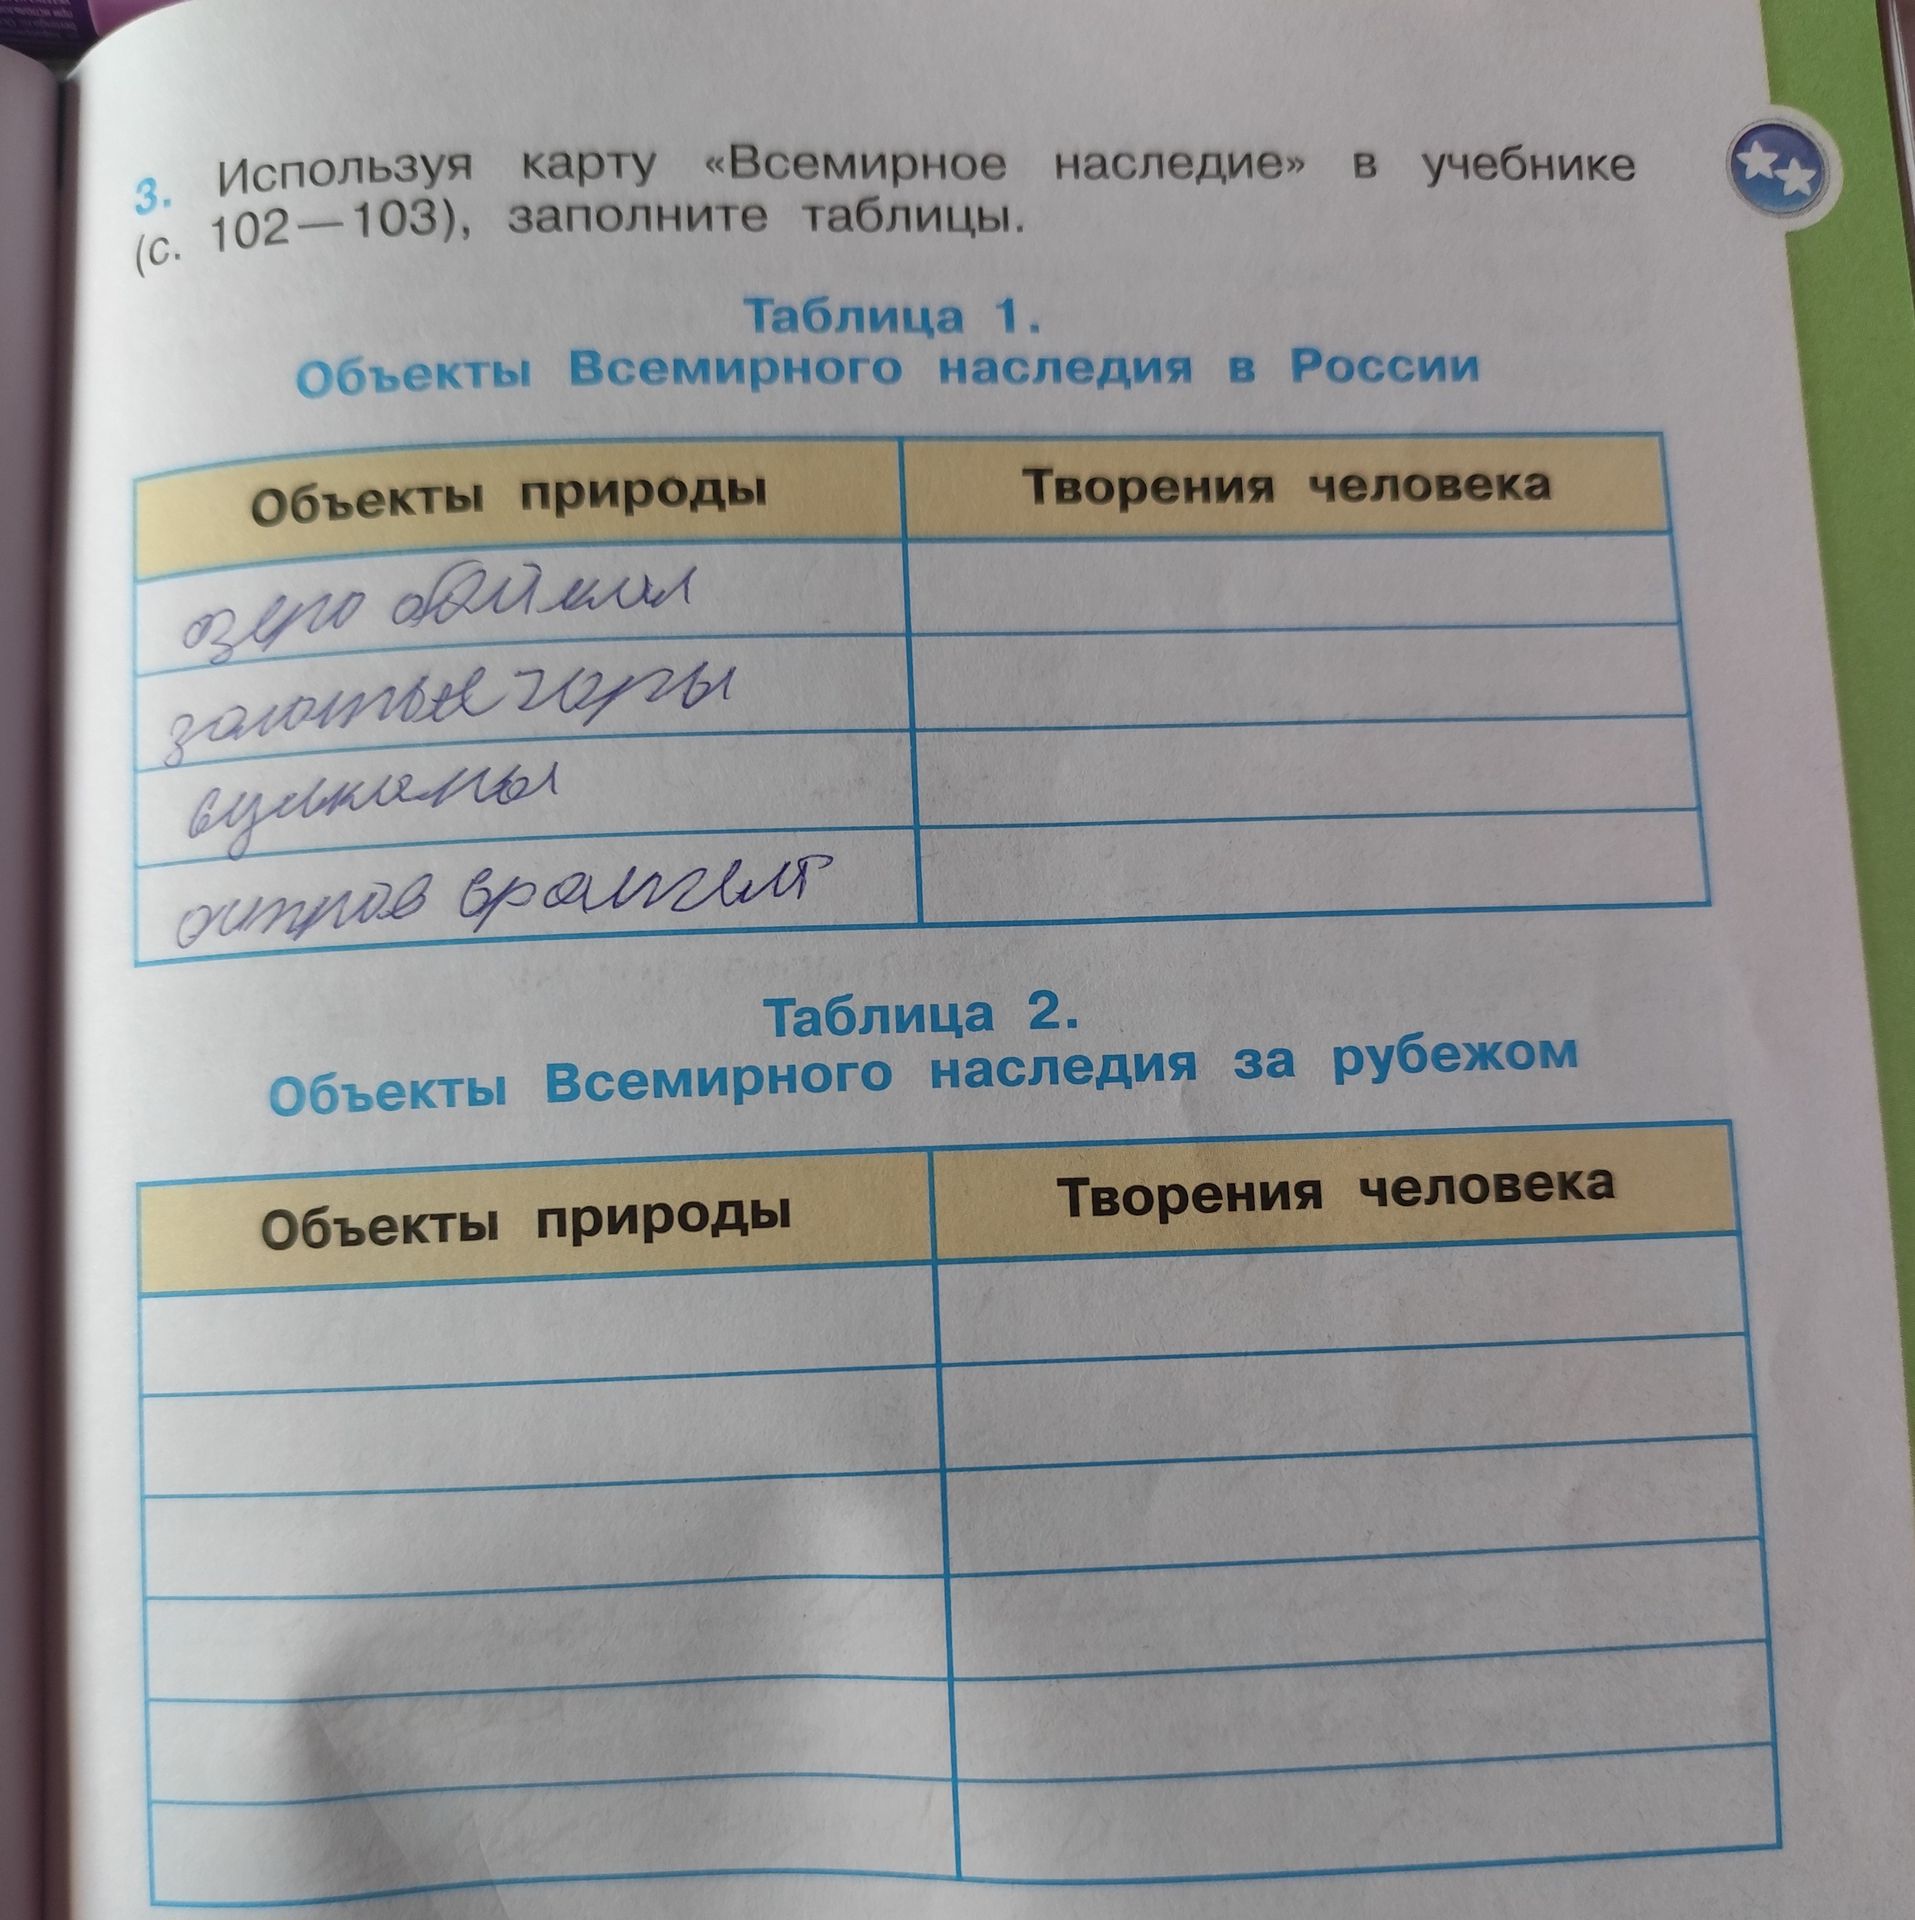 3. Используя карту «Всемирное наследие» в учебнике
(с. 102—103), заполните таблицы.
Таблица 1.
Объекты Всемирного наследия в России
Объекты природы Творения человека
озеро байкал
золотые горы
вулканы
остров врангеля
Таблица 2.
Объекты Всемирного наследия за рубежом
Объекты природы Творения человека